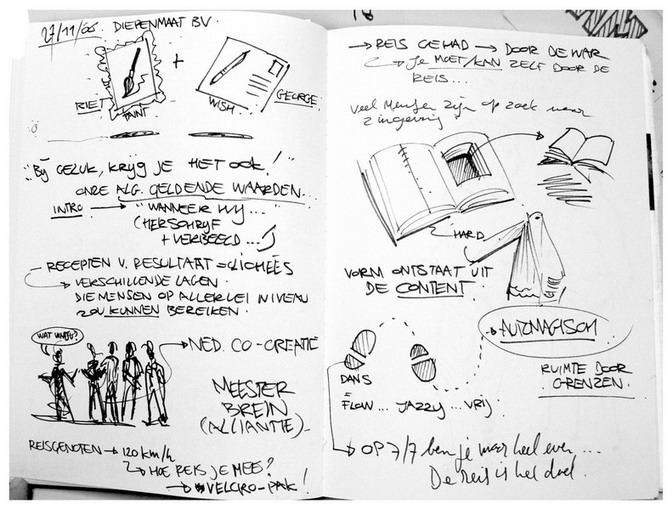 27/11/06 DIEPENMAAT BV.
RIET
PAINT
+
WISH
GEORGE
"BIJ GELUK, KRIJG JE HET OOK!"
ONZE ALG. GELDENDE WAARDEN.
INTRO → "WANNEER WIJ...
(HERSCHRIJF
+ VERBEELD...)
- RECEPTEN V. RESULTAAT = CLICHEÉS
→ VERSCHILLENDE LAGEN.
DIE MENSEN OP ALLERLEI NIVEAU
ZOU KUNNEN BEREIKEN.
WAT
→ NED. CO-CREATIE
MEESTER
BREIN
(ALLIANTIE)
REISGENOTEN → 120 km/h
→ HOE REIS JE MEE?
→ VELCRO-PAK!
→ REIS GEHAD → DOOR DE WAR
→ Je MOET/KAN ZELF DOOR DE
REIS...
veel mensen zijn op zoek naar
zingeving
HARD
VORM ONTSTAAT UIT
DE CONTENT.
AUTMAGISCH
RUIMTE DOOR
GRENZEN.
DANS
=
FLOW... JAZZY... VRIJ
→ OP 7/7 ben je maar heel even...
De reis is het doel.